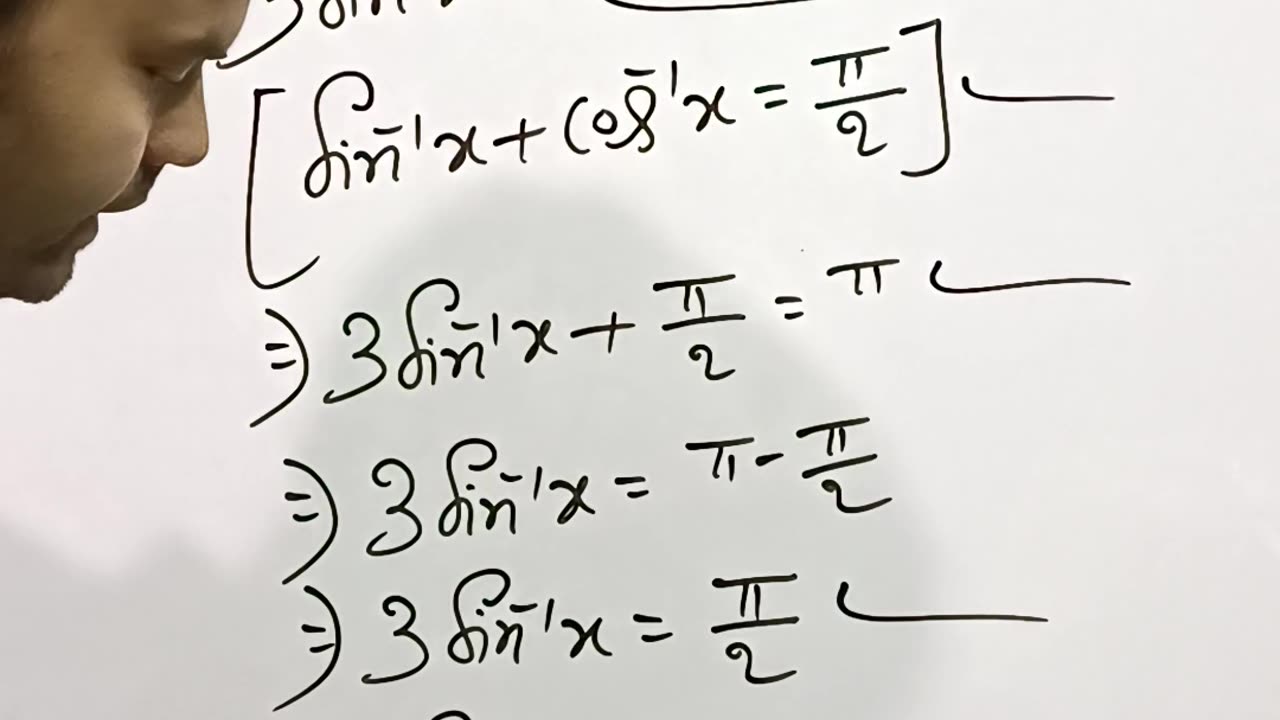 3 sin
[sin⁻¹x + cos⁻¹x = π/2]
⇒ 3 sin⁻¹x + π/2 = π
⇒ 3 sin⁻¹x = π - π/2
⇒ 3 sin⁻¹x = π/2